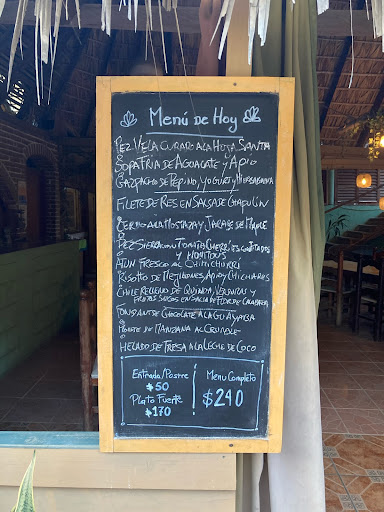 Menú de Hoy
Pez Vela curado a la Hoja Santa
Sopa Fria de Aguacate y Apio
Gazpacho de Pepino, yogurt y Hierbabuena
Filete de Res en Salsa de Chapulín
Cerdo a la Mostaza y Jarabe de Maple
Pez Sierra con Tomate Cherri's
y
Atún Fresco al Chimichurri
Risotto de Mejillones, Apio y Chicharos
Chile Relleno de Quinoa, Verduras y
Frutos Secos en Salsa de Flor de Calabaza
Fondant de Chocolate a la Guayaba
de Manzana al Crumble
Helado de Fresa a la Leche de Coco
Entrada/Postre
$50
Plato Fuerte
$170
Menu Completo
$240